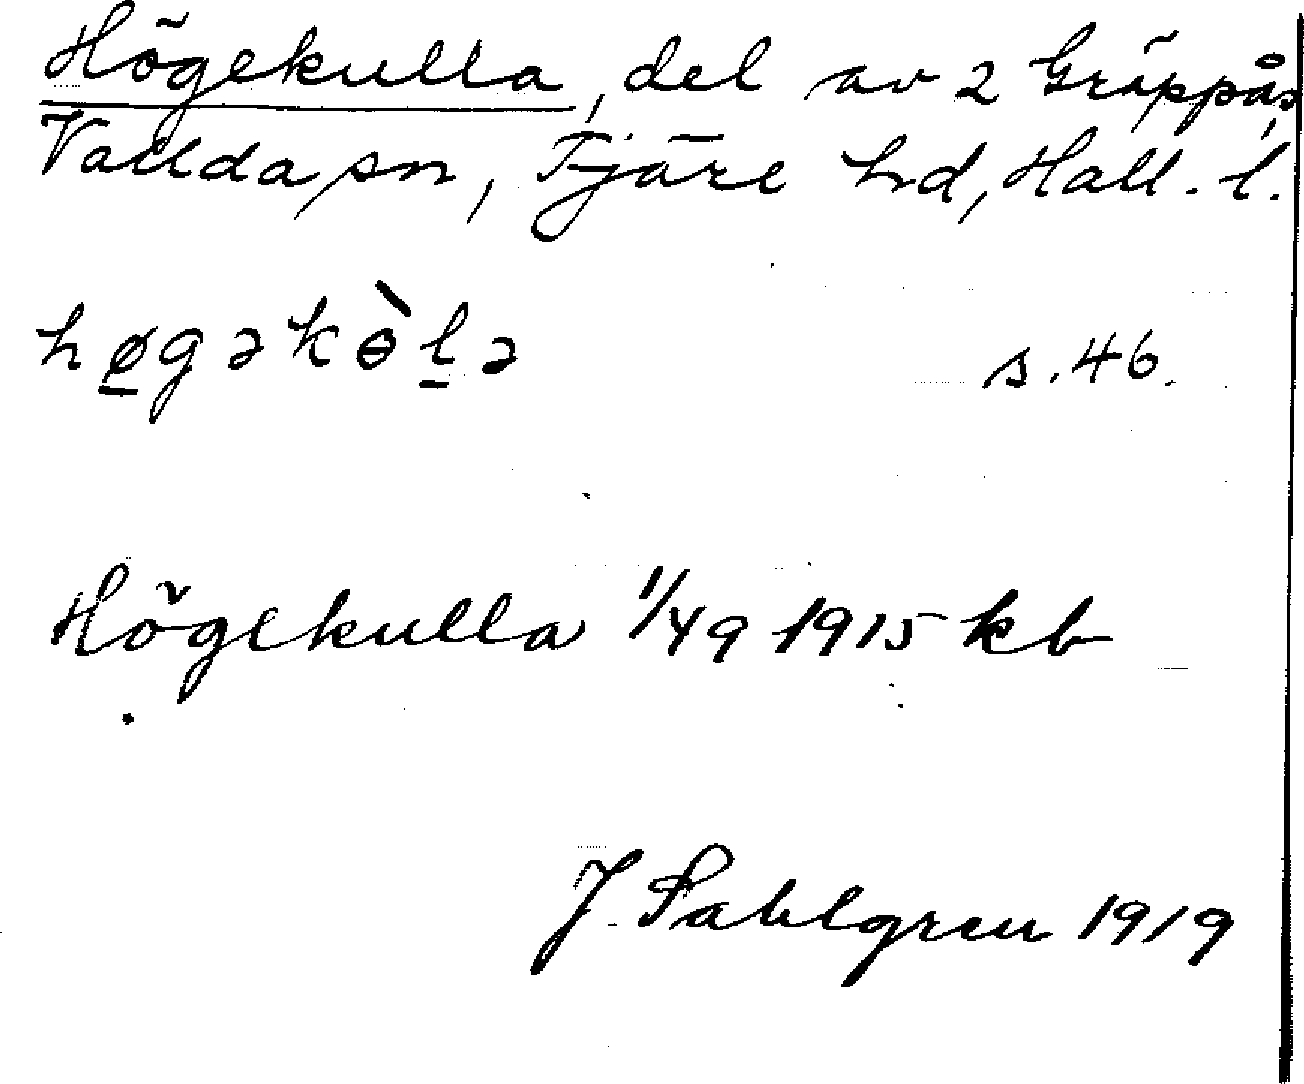 Högekulla, del av 2 Gräppås,
Vallda sn, Fjäre hd, Hall. l.
hø̱gəkɵ̀ḻə s. 46.
Högekulla 1/49 1915 kb
J. Sahlgren 1919